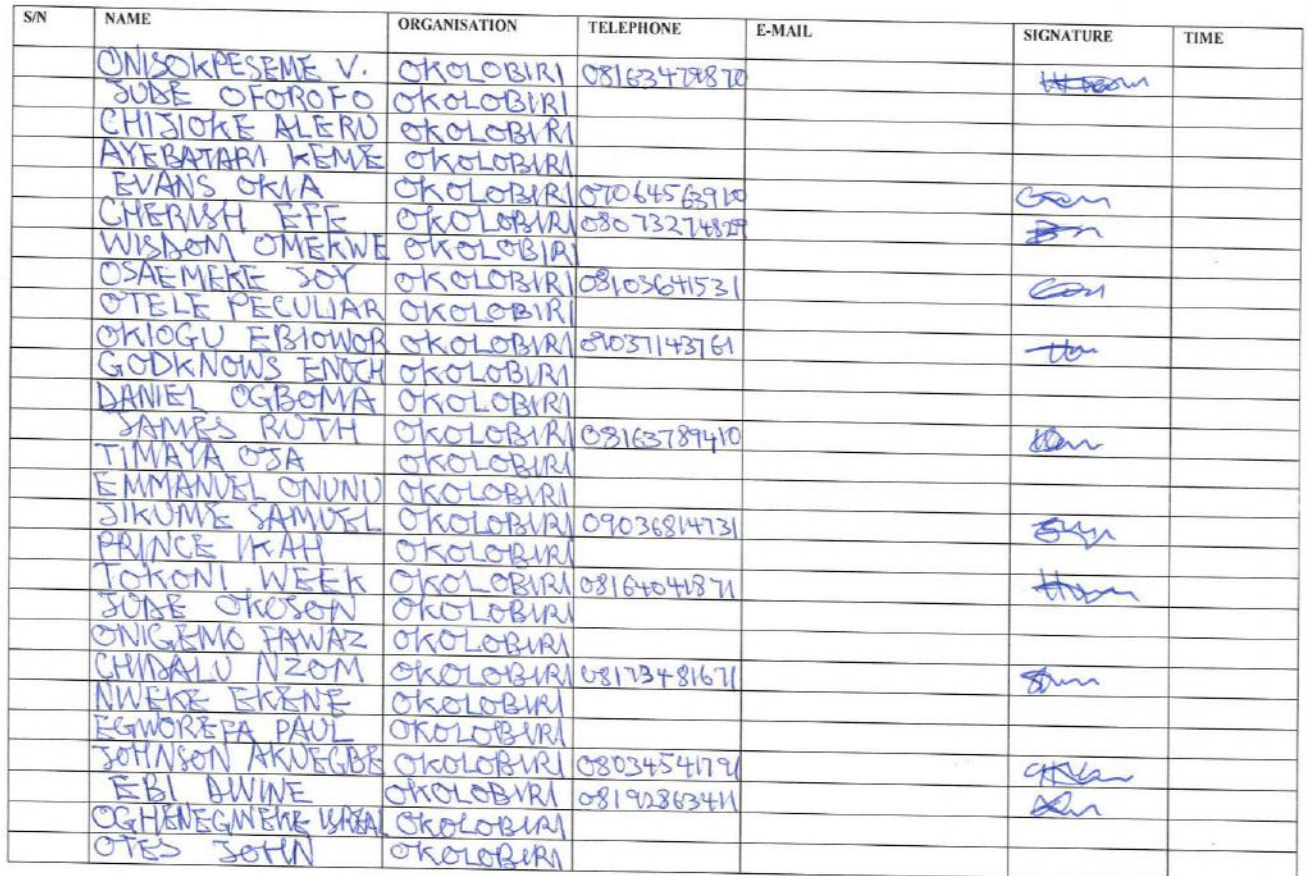 S/N NAME ORGANISATION TELEPHONE E-MAIL SIGNATURE TIME
ONISOKPESEME V. OKOLOBIRI 08163479870
JUDE OFOROFO OKOLOBIRI
CHIJIOKE ALERU OKOLOBIRI
AYEBATARI KEME OKOLOBIRI
EVANS OKIA OKOLOBIRI 07064563910
CHERISH EFE OKOLOBIRI 08073274829
WISDOM OMEKWE OKOLOBIRI
OSAEMEKE JOY OKOLOBIRI 08103641531
OTELE PECULIAR OKOLOBIRI
OKIOGU EBIOWOR OKOLOBIRI 09037143761
GODKNOWS ENOCH OKOLOBIRI
DANIEL OGBOMA OKOLOBIRI
JAMES RUTH OKOLOBIRI 08163789410
TIMAYA OJA OKOLOBIRI
EMMANUEL ONUNU OKOLOBIRI
JIKUME SAMUEL OKOLOBIRI 09036814731
PRINCE IKAH OKOLOBIRI
TOKONI WEEK OKOLOBIRI 08164041871
JUDE OKOSON OKOLOBIRI
ONIGEMO FAWAZ OKOLOBIRI
CHIDALU NZOM OKOLOBIRI 08173481671
NWEKE EKENE OKOLOBIRI
EGWOREFA PAUL OKOLOBIRI
JOHNSON AKUEGBE OKOLOBIRI 08034541791
EBI DWINE OKOLOBIRI 08192863411
OKOLOBIRI
OTES JOHN OKOLOBIRI